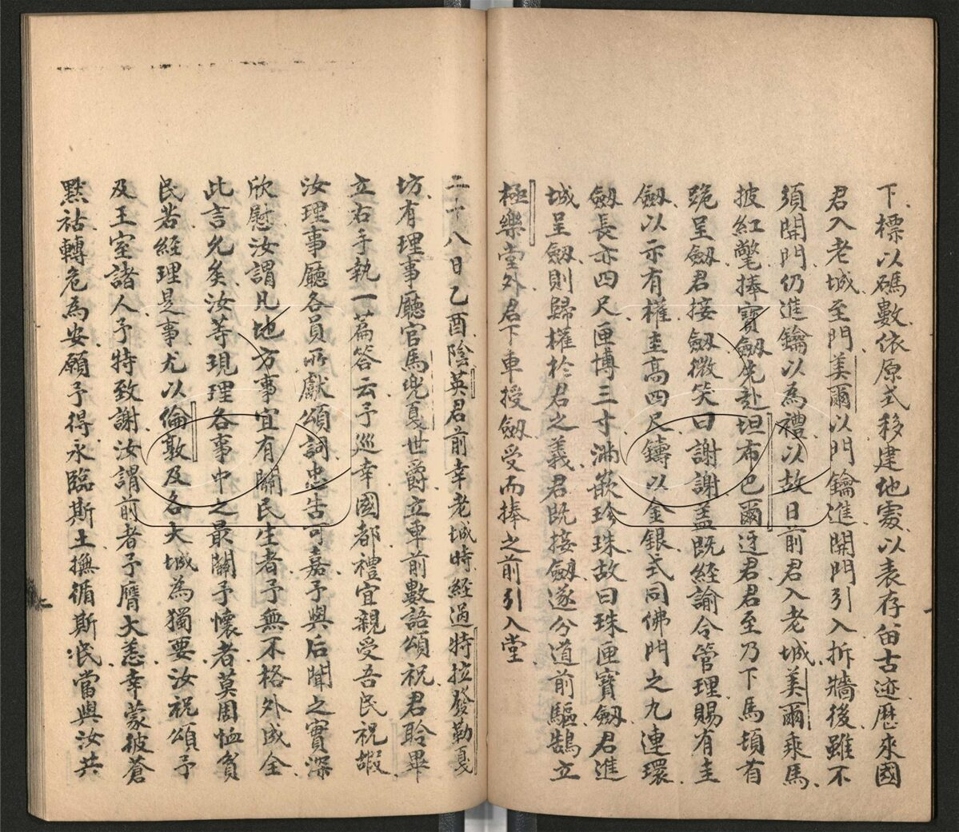 下標以碼數依原式移建他處以表存留古迹歷來國
君入老城至門美爾以門鑰進開門引入拆牆後雖不
須開門仍進鑰以為禮以故日前君入老城美爾乘馬
披紅氅捧寶劔先赴坦布巴爾迓君君至乃下馬頓首
跪呈劔君接劔微笑曰謝謝盖既經諭令管理賜有圭
劔以示有權圭高四尺鑄以金銀式同佛門之九連環
劔長亦四尺匣博三寸滿嵌珍珠故曰珠匣寶劔君進
城呈劔則歸權於君之義君既接劔遂分道前驅鵠立
極樂堂外君下車授劔受而捧之前引入堂
二十八日乙酉陰英君前幸老城時経過特拉發勒戛
坊有理事廳官馬兜戛世爵立車前數語頌祝君聆畢
立右手執一篇答云予巡幸國都禮宜親受吾民祝嘏
汝理事廳各員所獻頌詞忠告可嘉予與后聞之實深
欣慰汝謂凡地方事宜有關民生者予無不格外成全
此言允矣汝等現理各事中之最關予懷者莫周恤貧
民若經理是事尤以倫敦及各大城為獨要汝祝頌予
及王室諸人予特致謝汝謂前者予膺大恙幸蒙彼蒼
默祜轉危為安願予得永臨斯土撫循斯民當與汝共